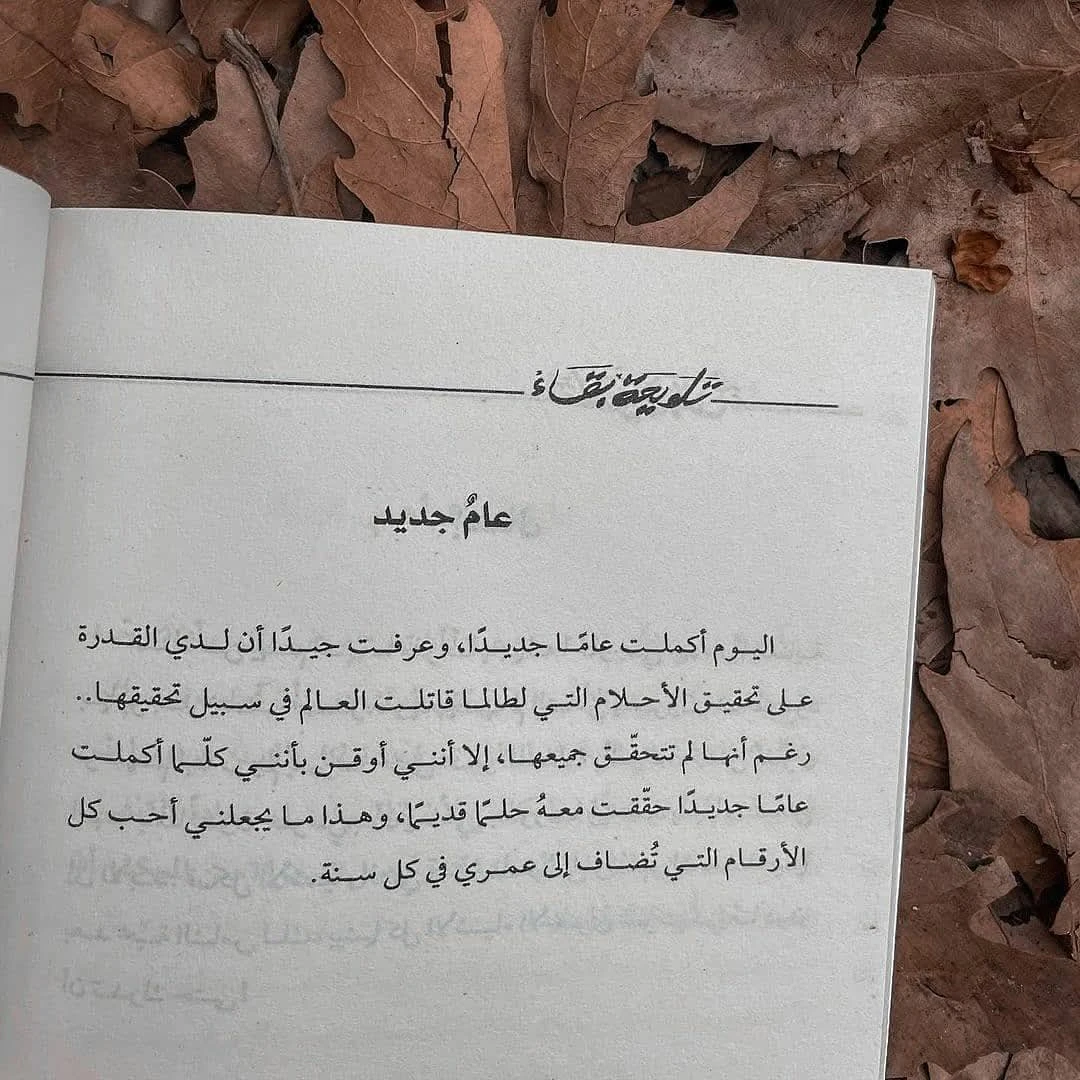 تلويحة بقاء
عامٌ جديد
اليوم أكملت عامًا جديدًا، وعرفت جيدًا أن لدي القدرة
على تحقيق الأحلام التي لطالما قاتلت العالم في سبيل تحقيقها..
رغم أنها لم تتحقّق جميعها، إلا أنني أوقن بأنني كلّما أكملت
عامًا جديدًا حقّقت معهُ حلمًا قديمًا، وهذا ما يجعلني أحب كل
الأرقام التي تُضاف إلى عمري في كل سنة.